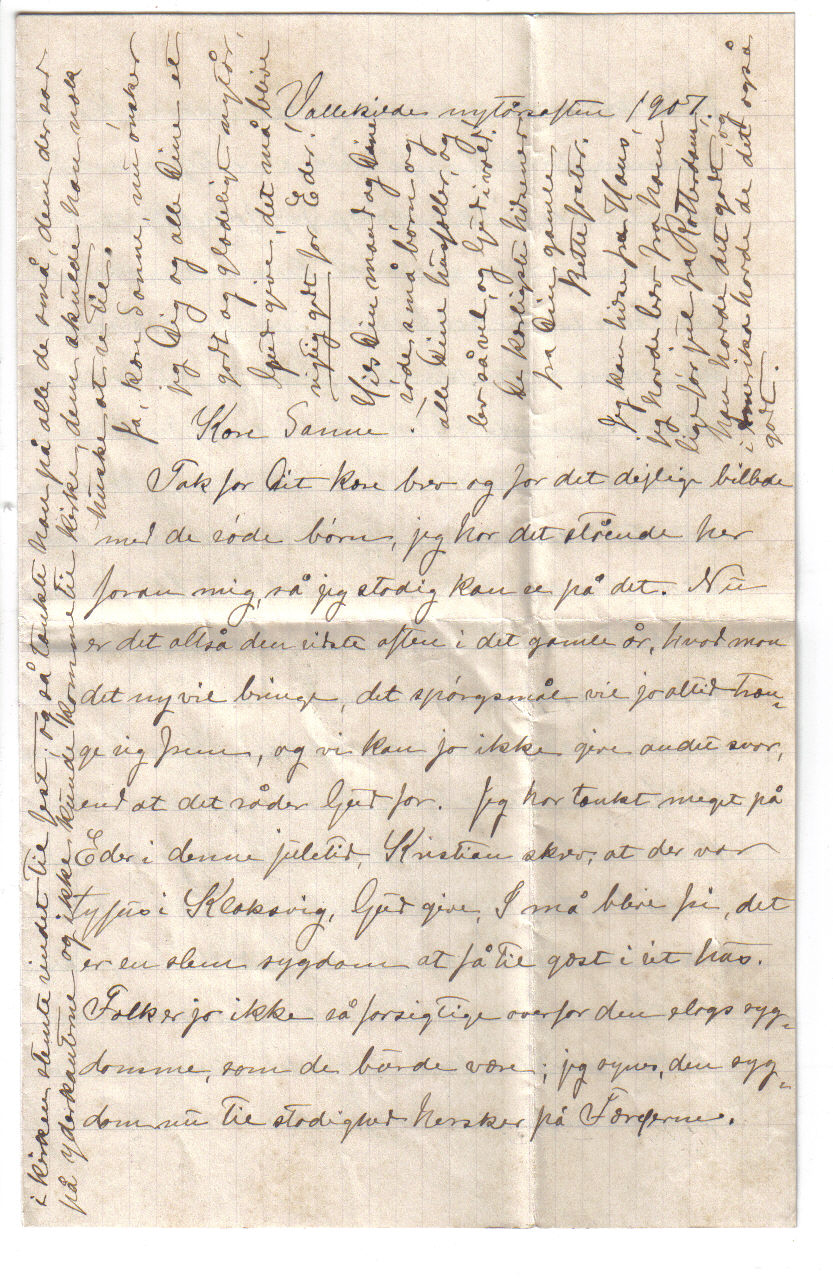 Vallekilde nytårsaften 1907.
Kære Sanne!
Tak for Dit kære brev og for det dejlige billede
med de söde börn, jeg har det stående her
foran mig, så jeg stadig kan se på det. Nu
er det altså den sidste aften i det gamle år, hvad mon
det ny vil bringe, det spörgsmål vil jo altid træn-
ge sig frem, og vi kan jo ikke give andet svar,
end at det råder Gud for. Jeg har tænkt meget på
Eder i denne juletid, Kristian skrev, at der var
tyfus i Klaksvig, Gud give, I må blive fri, det
er en slem sygdom at få til gæst i sit hus.
Folk er jo ikke så forsigtige overfor den slags syg-
domme, som de burde være; jeg synes, den syg-
dom nu til stadighed hersker på Færøerne.
i kirken stemte sindet til fest, og så tænkte han på alle de små, dem der sad
på yderkanterne og ikke kunde komme til kirke, dem skulde han nok
huske at se til.
Ja, kære Sanne, nu önsker
jeg Dig og alle Dine et
godt og glædeligt nytår,
Gud give, det må blive
rigtig godt for Eder!
Hils Din mand og Dine
söde små börn og
alle Dine husfæller, og
lev så vel, og Gud i vold!
De kærligste hilsener
fra Din gamle
Jeg kan hilse fra Hans,
jeg havde brev fra ham
lige før jul fra Rotterdam,
han havde det godt, og
i Amerika havde de det også
godt.